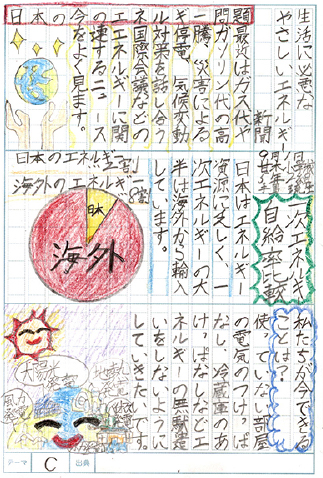 生活に必要な
やさしいエネルギー
新聞
日本のエネルギー問題
最近はガス代や
ガソリン代の高
騰、災害による
停電、気候変動
対策を話し合う
国際会議などの
エネルギーに関
連するニュース
今をよく見ます。
一次エネルギー
自給率比較
日本はエネルギー
資源に乏しく、一
次エネルギーの大
半は海外から輸入
しています。
日本のエネルギー2割
海外のエネルギー8割
日本
海外
私たちが今できる
ことは?
使っていない部屋
の電気のつけっぱ
なし、冷蔵庫のあ
けっぱなしなどエ
ネルギーの無駄遣
いをしないように
していきたいです。
太陽光発電
風力発電
テーマ C 出典